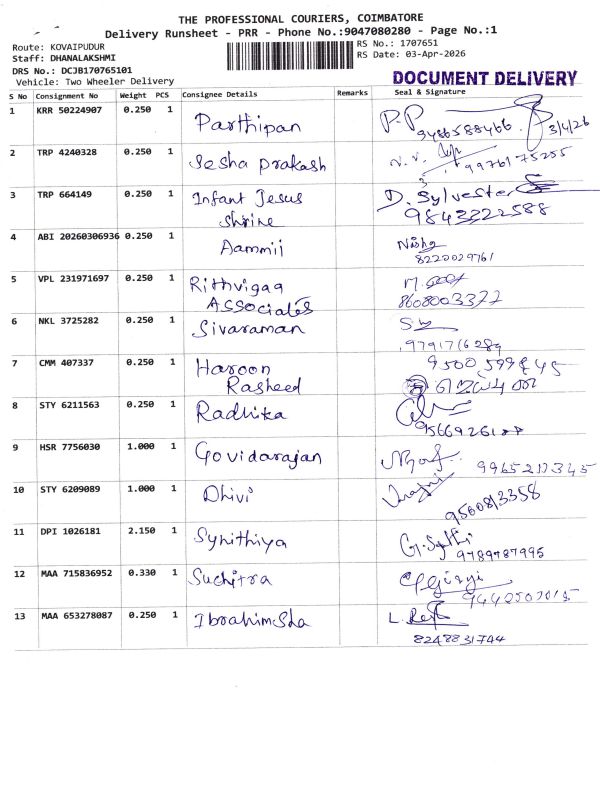 THE PROFESSIONAL COURIERS, COIMBATORE
Delivery Runsheet - PRR - Phone No.:9047080280 - Page No.:1
Route: KOVAIPUDUR
Staff: DHANALAKSHMI
DRS No.: DCJB170765101
Vehicle: Two Wheeler Delivery
RS No.: 1707651
RS Date: 03-Apr-2026
DOCUMENT DELIVERY
S No Consignment No Weight PCS Consignee Details Remarks Seal & Signature
1 KRR 50224907 0.250 1 Parthipan P.P 9486588466 3/4/26
2 TRP 4240328 0.250 1 Sesha prakash 9976175255
3 TRP 664149 0.250 1 Infant Jesus D. Sylvester
Shrine 9843222588
4 ABI 20260306936 0.250 1 Aammii Nisha
8220029761
5 VPL 231971697 0.250 1 Rithvigaa
Associates 8608003377
6 NKL 3725282 0.250 1 Sivaraman
9791716289
7 CMM 407337 0.250 1 Haroon
Rasheed
8 STY 6211563 0.250 1 Radhika
9 HSR 7756030 1.000 1 Govidarajan
10 STY 6209089 1.000 1 Dhivi
9560813358
11 DPI 1026181 2.150 1 Synithiya
9789787995
12 MAA 715836952 0.330 1 Suchitra
13 MAA 653278087 0.250 1 IbrahimSha
8248831744